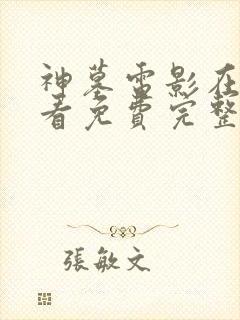 神墓電影在
看免費完整
張敏文